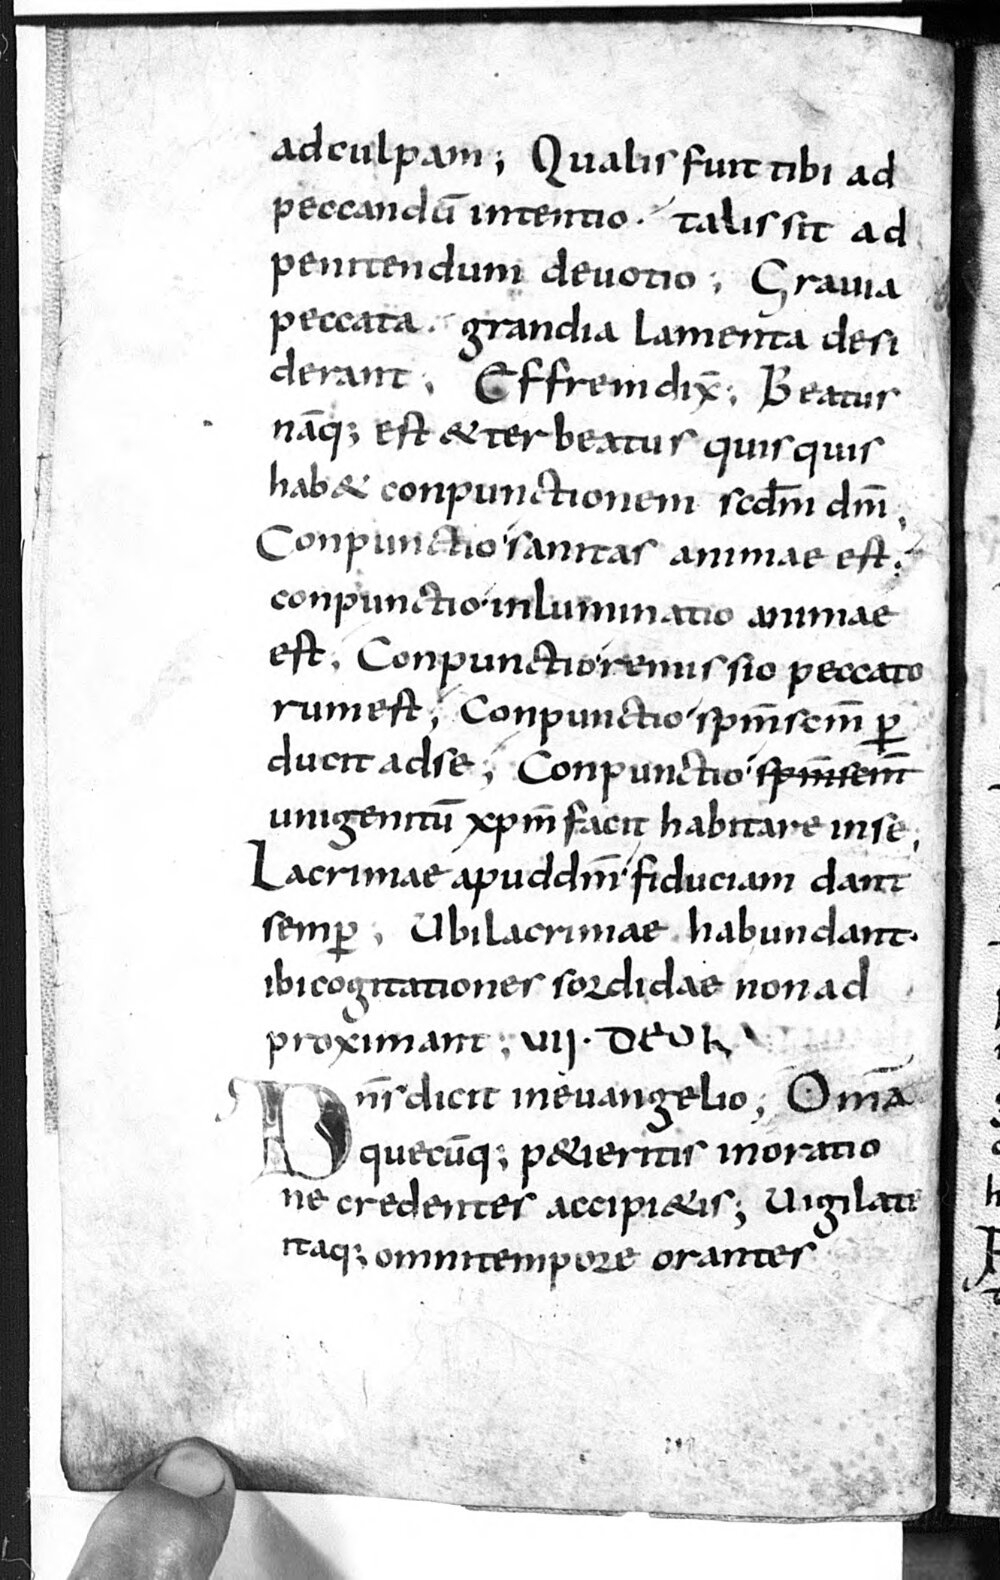 adculpam; Qualis fuit tibi ad
peccandū intentio. talis sit ad
penitendum deuotio; Grauia
peccata. grandia lamenta desi
derant; Effrem dix̄; Beatus
nāq; est & ter beatus quis quis
hab& conpunctionem scd̄m dm̄;
Conpunctio sanitas animae est;
conpunctio inluminatio animae
est; Conpunctio remissio peccato
rum est; Conpunctio sp̄m sc̄m ꝑ
ducit adse; Conpunctio sp̄m sc̄m
unigenitū xp̄m facit habitare inse;
Lacrimae apud dm̄ fiduciam dant
semꝑ; Ubi lacrimae habundant.
ibi cogitationes sordidae non ad
proximant; VII. DE OR
Dn̄s dicit in euangelio; Om̄a
quecūq; p&ieritis in oratio
ne credentes accipi&is; Uigilate
itaq; omni tempore orantes